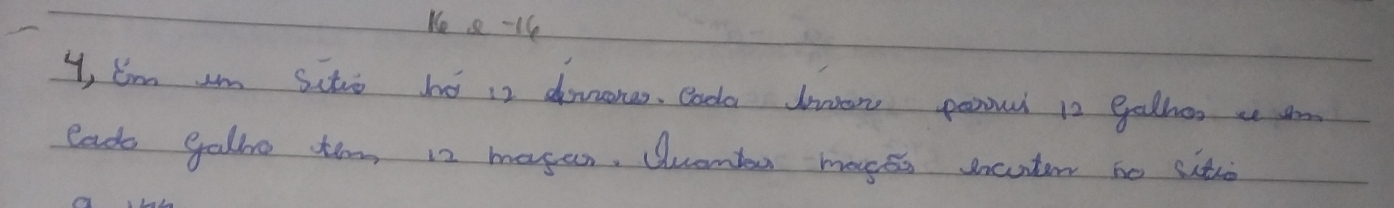 16 e -16
4, Em um sítio há 12 árvores. Cada árvore possui 12 galhos e em
cada galho tem 12 maças. Quantas maçãs existem no sítio